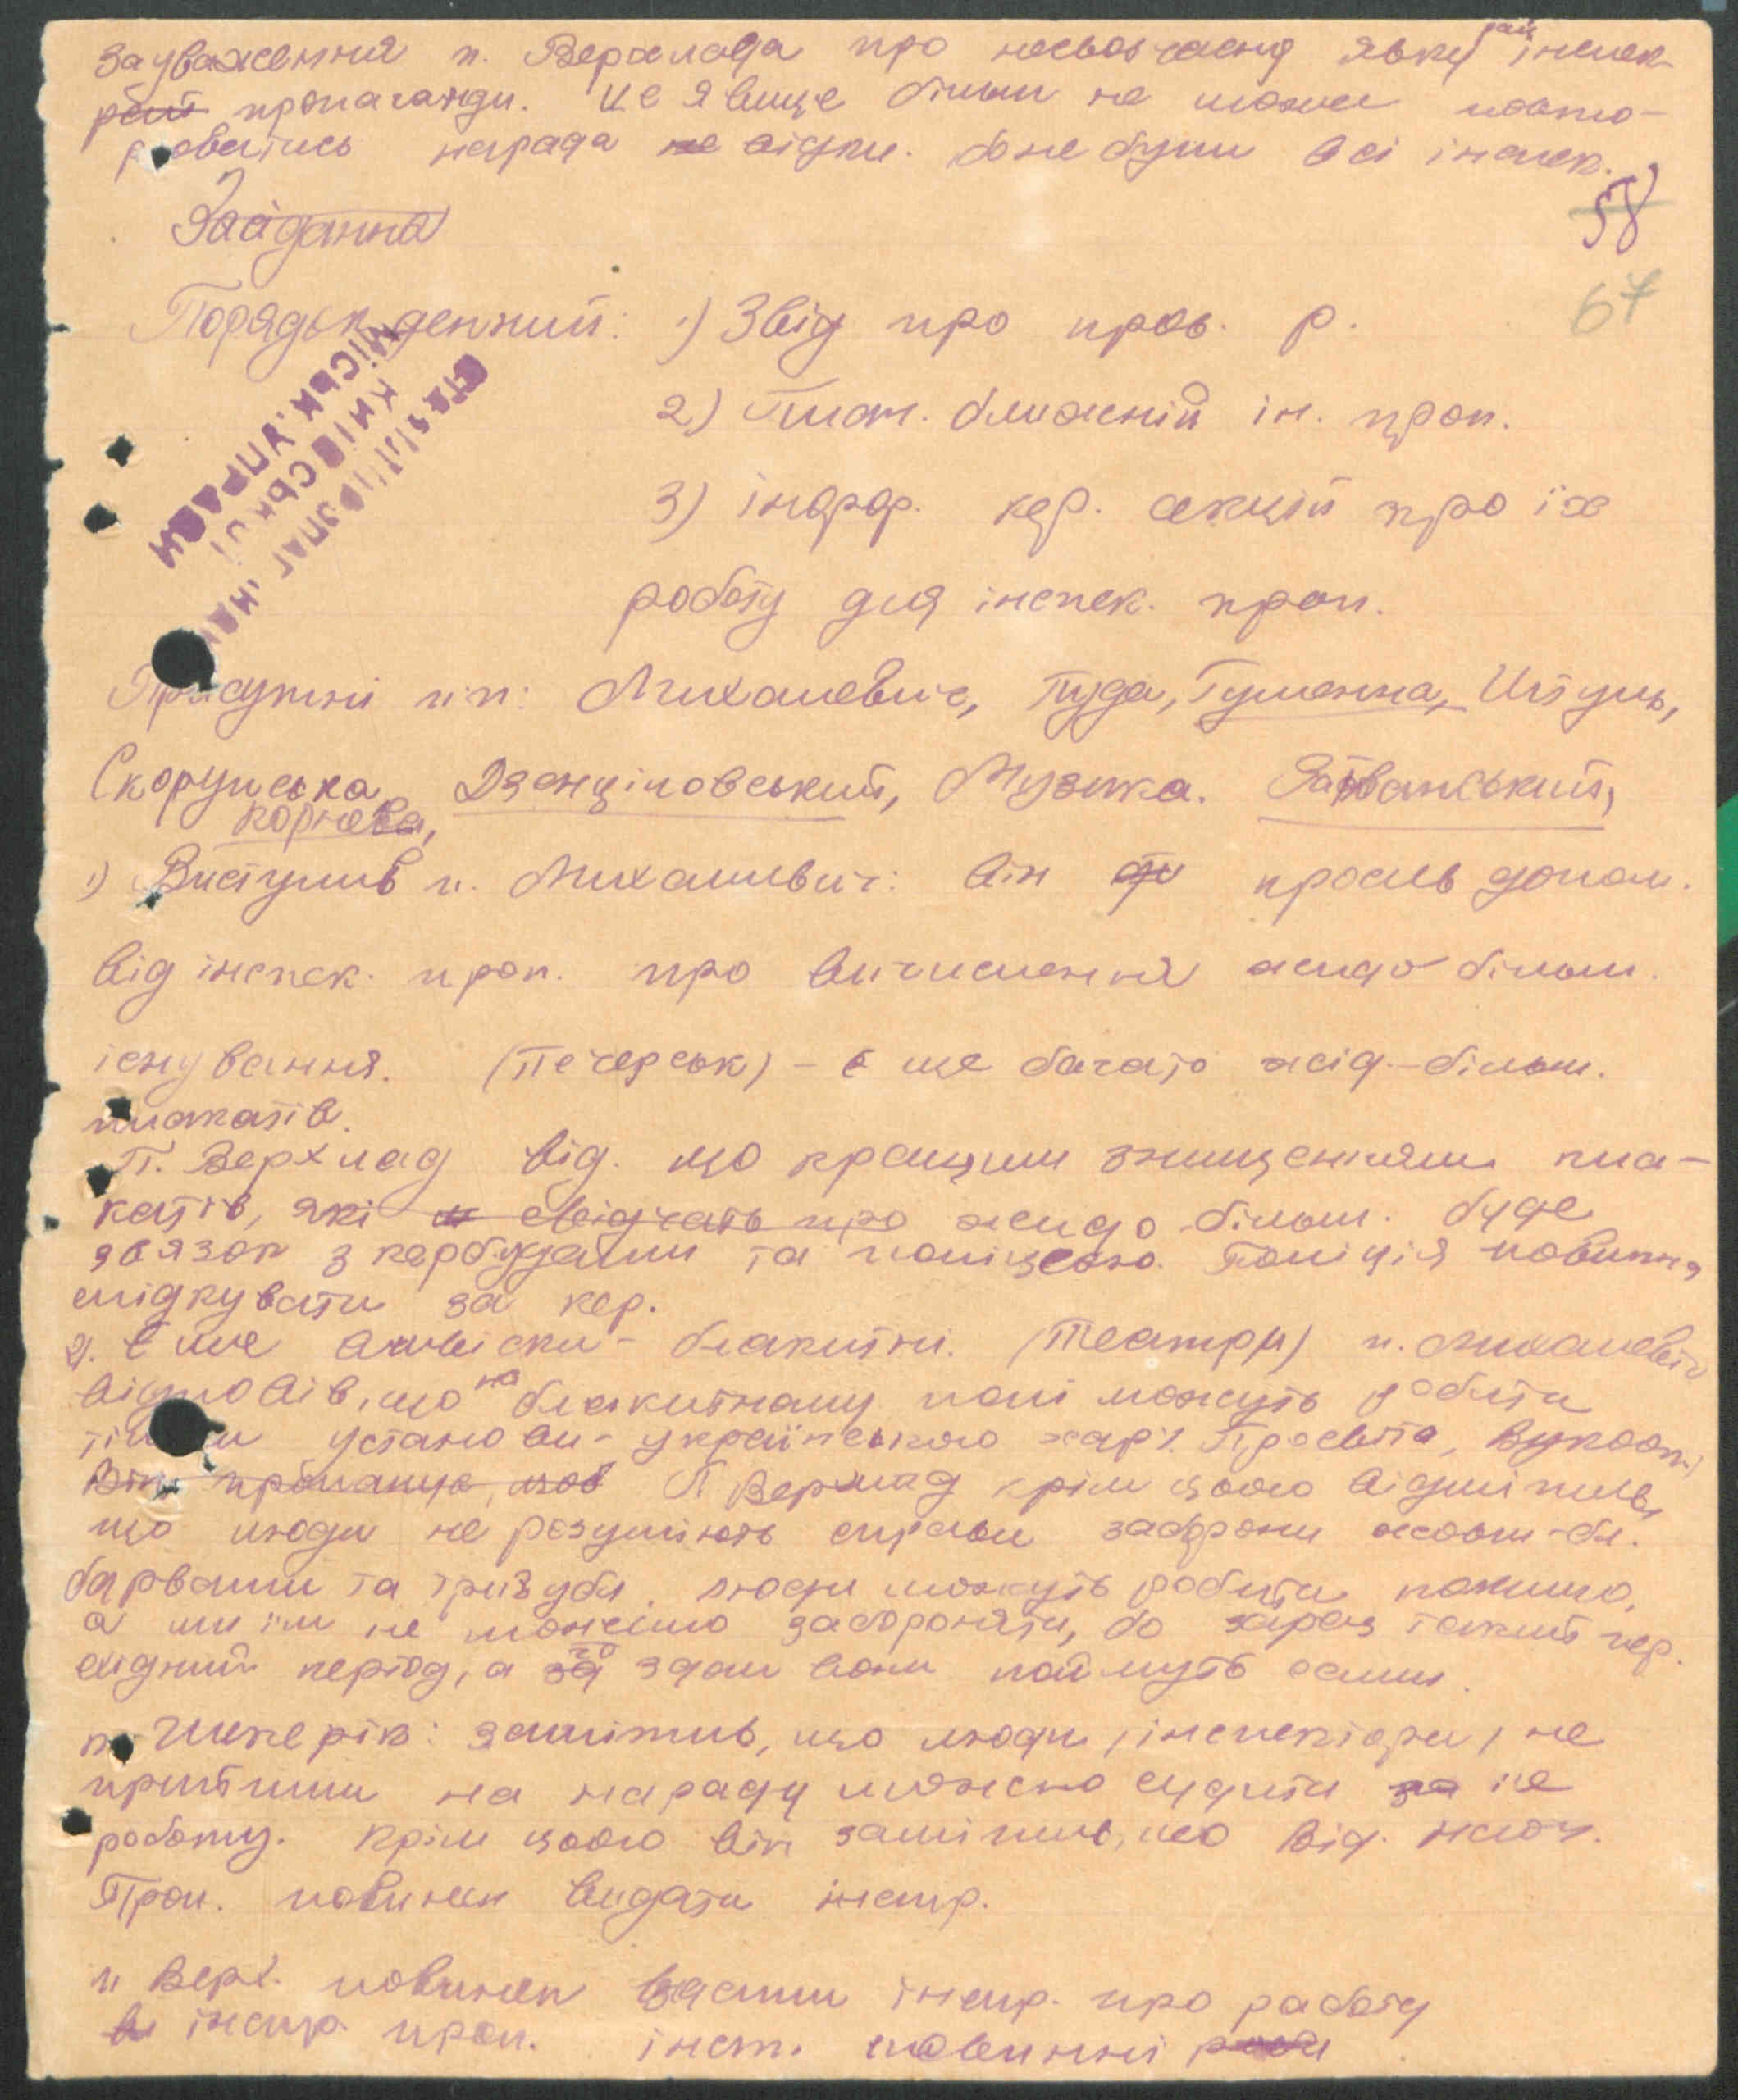 зауваження п. Верхлада про несвоєчасну явку рай інспек-
пропаганди. Це явище більш не може повто-
рюватись нарада не відкл. бо не були всі інспек.
58
Засідання
67
Порядок денний: 1) Звід про пров. р.
2) План. ближеній ін. проп.
3) інфор. кер. секцій про їх
роботу для інспек. проп.
МІСЬК. УПРАВИ
КИЇВСЬКОЇ
Присутні п.п: Михалевич, Гуда, Гуменна, Штуль,
Скорупська, Дзенціловський, Музика. Ятванський,
Корнєва,
1) Виступив п. Михалевич: він просив допом.
від інспек. проп. про вичислення жидо більш.
існування. (Печерськ) - є ще багато жид.-більш.
плакатів.
П. Верхлад від. що кращим знищенням пла-
катів, які свідчать про жидо-більш. буде
звязок з кербудами та поліцею. Поліція повинна
слідкувати за кер.
2. Є ще вивіски - блакитні. (Театри) п. Михалевич
відповів, що на блакитному полі можуть робити
тільки установи - українського хар. Просвіта, Вукооп.
Він пропанує, щоб П Верхлад крім цього відмітив,
що люди не розуміють справи заборони жовт-бл.
барвами та тризуба. люди можуть робити помилю,
а ми їм не можемо забороняти, бо зараз такий пер.
хідний період, а згодом вони поймуть самі.
п. Шекерік: замітив, що люди (інспектори) не
прийшли на нараду можно судити їхе
роботу. Крім цього він замітив, що Від.
Проп. повинен видати інстр.
п Верх. повинен видати інстр. про работу
інстр. проп. інст. повинні